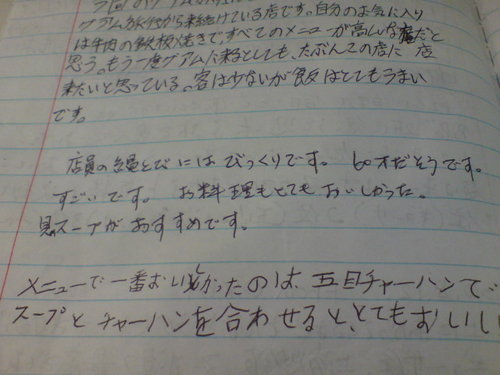 グアム旅行から来続けている店です。自分のお気に入り
は牛肉の鉄板焼きで、すべてのメニューが高レベルだと
思う。もう一度グアムに来るとしても、たぶんこの店に
来たいと思っている。客は少ないが飯はとてもうまい
です。
店員の縄とびにはびっくりです。60才だそうです。
すごいです。お料理もとてもおいしかった。
スープがおすすめです。
メニューで一番おいしかったのは、五目チャーハンで
スープとチャーハンを合わせると、とてもおいしい